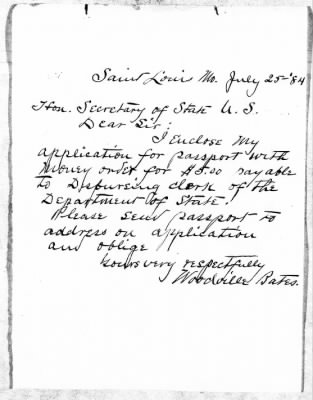 Saint Louis Mo. July 25-'84
Hon. Secretary of State U. S.
Dear Sir:
I Enclose My
application for passport with
money order for $5.00 payable
to Disbursing clerk of the
Department of State.
Please send passport to
address on application
and oblige
yours very respectfully
Woodville Bates.